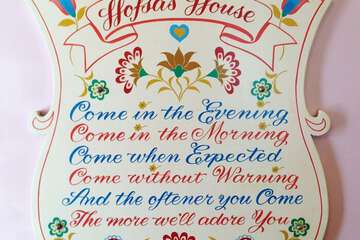 Hofsas House
Come in the Evening
Come in the Morning
Come when Expected
Come without Warning
And the oftener you Come
The more we'll adore You